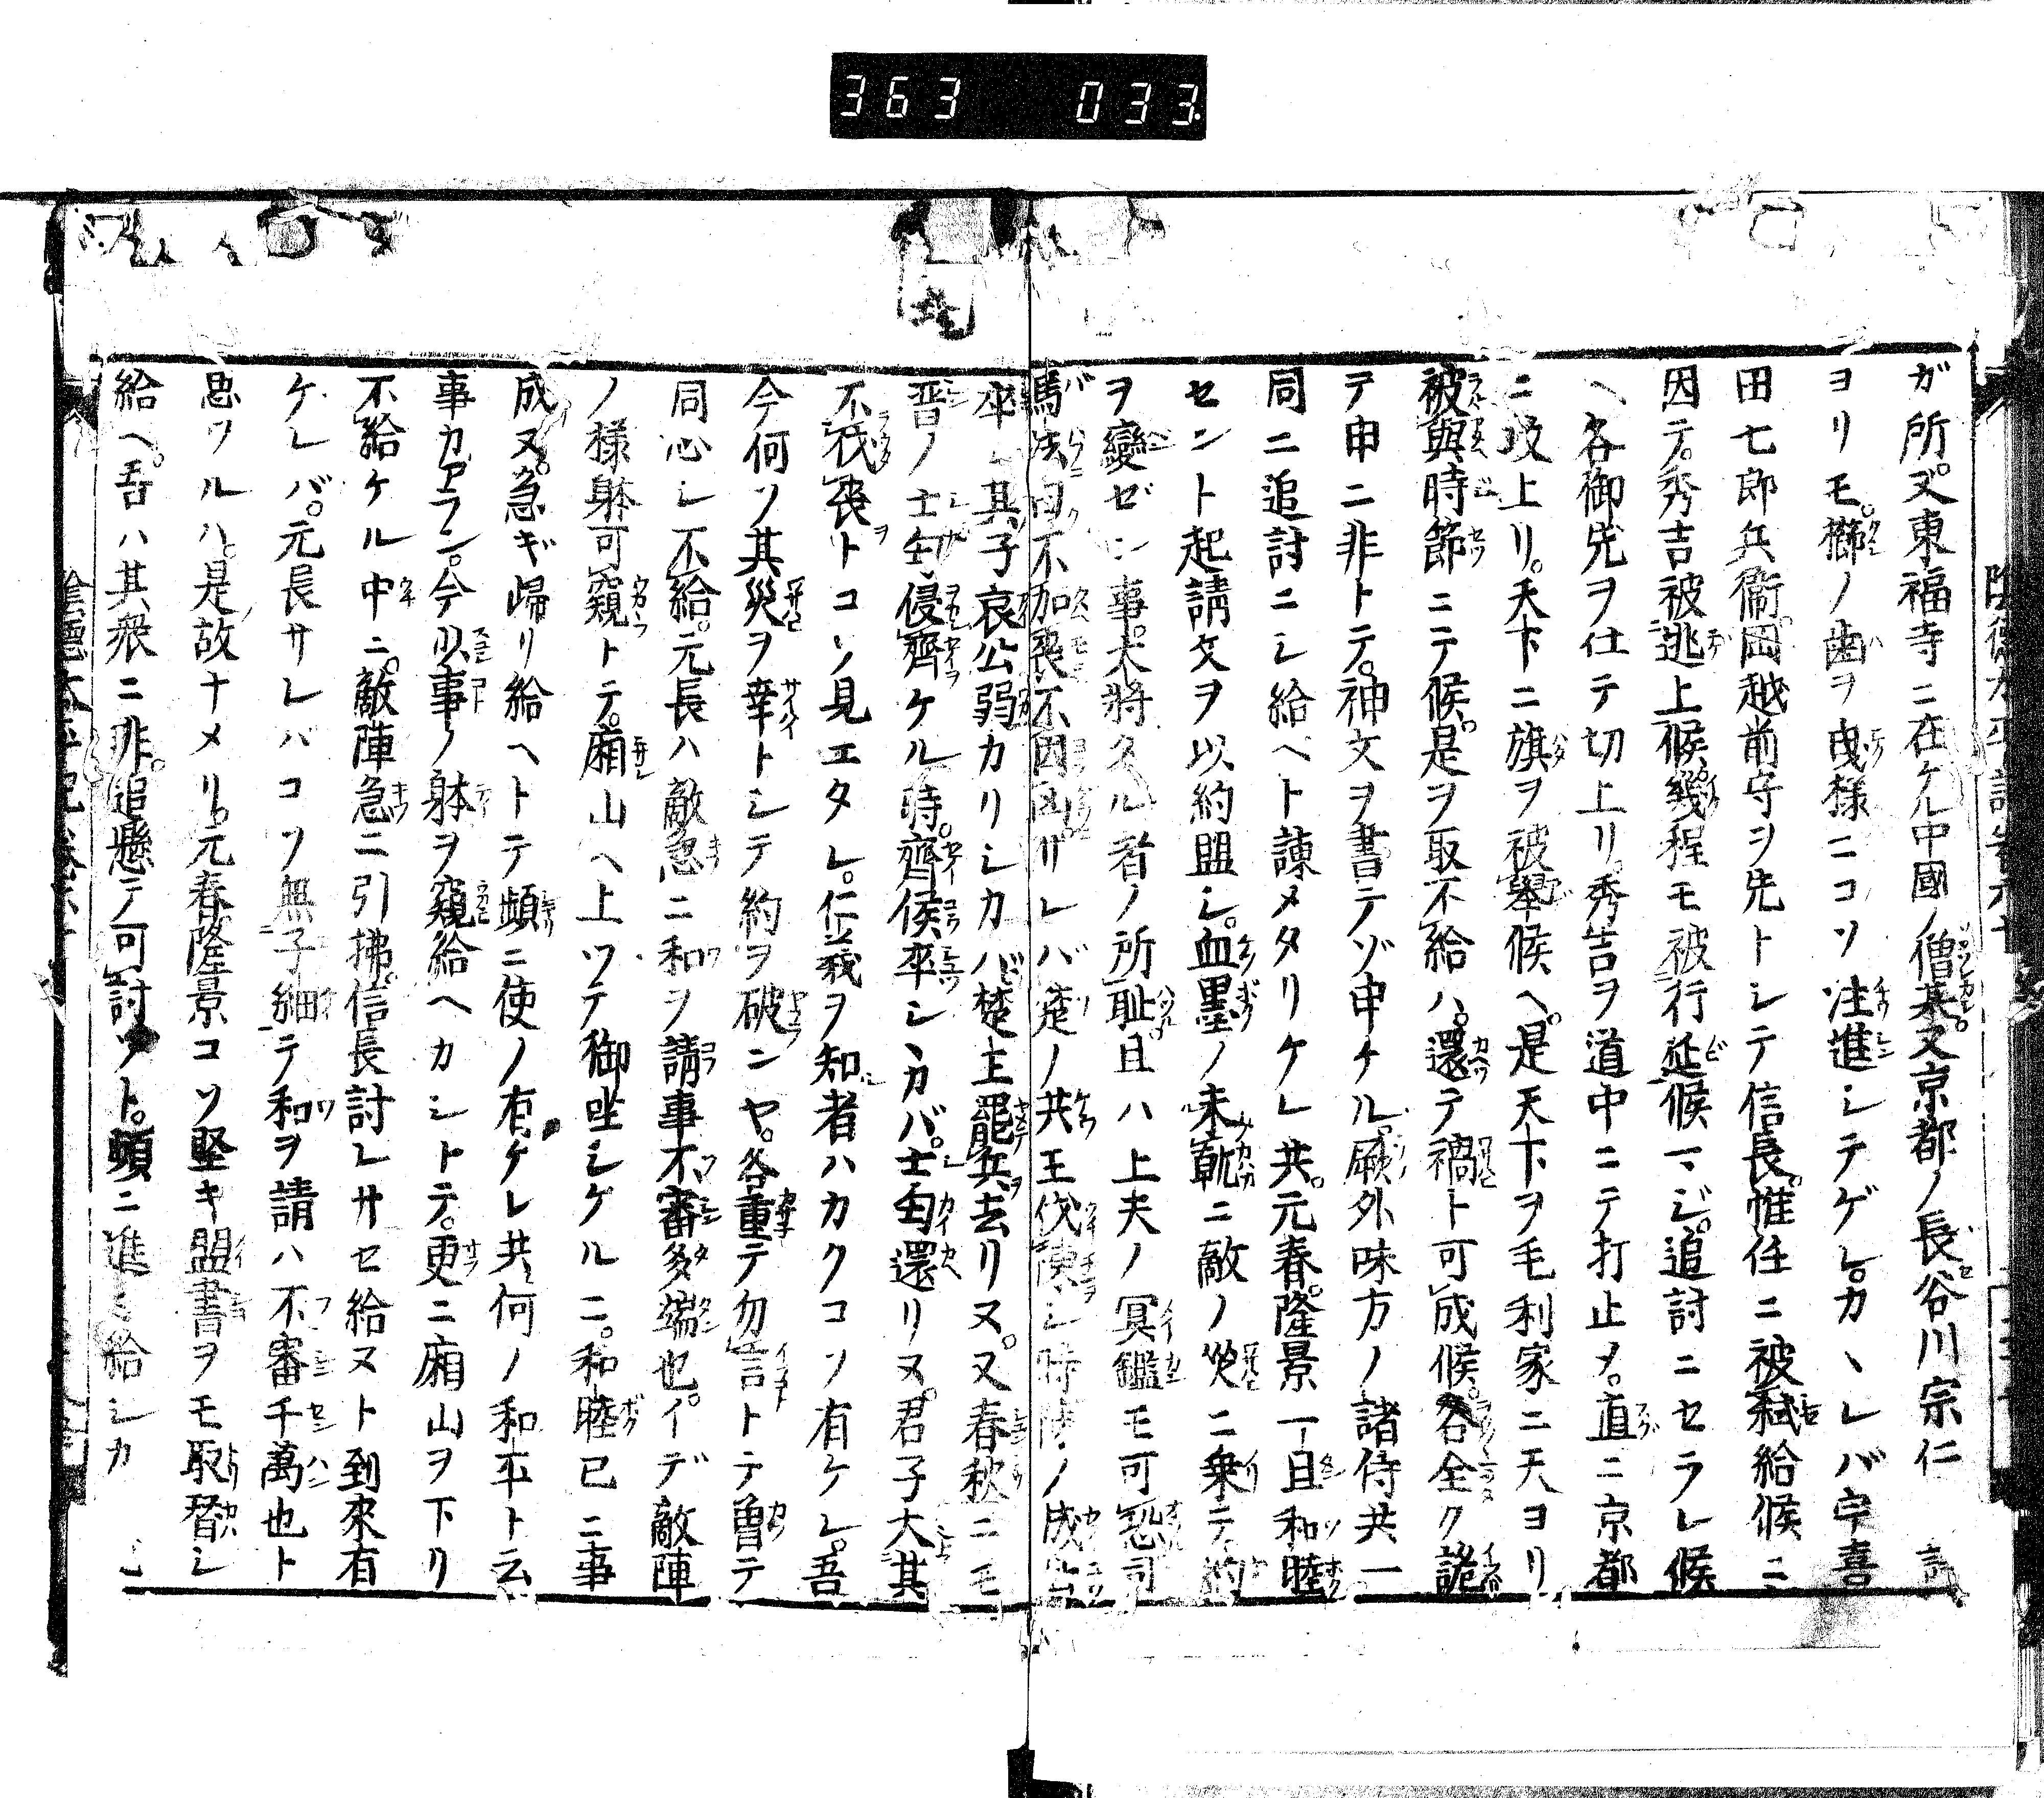 363 033
ガ所。又東福寺ニ在ケル中國ノ僧某。又京都ノ長谷川宗仁
ヨリモ。櫛ノ歯ヲ曳様ニコソ注進シテゲレ。カヽレバ宇喜
田七郎兵衛。岡越前守ヲ先トシテ信長。惟任ニ被弑給候ニ
因テ。秀吉被逃上候。幾程モ被行延候マジ。追討ニセラレ候
ヘ各御先ヲ仕テ切上リ。秀吉ヲ道中ニテ打止メ。直ニ京都
ニ攻上リ。天下ニ旗ヲ被擧候ヘ。是天下ヲ毛利家ニ天ヨリ
被與時節ニテ候。是ヲ取不給ハ。還テ禍ト可成候。各全ク詭
テ申ニ非トテ。神文ヲ書テゾ申ケル。厥外味方ノ諸侍共一
同ニ追討ニシ給ヘト諫メタリケレ共。元春。隆景一旦和睦
セント起請文ヲ以約盟シ。血墨ノ未乾ニ敵ノ災ニ乗テ。約
ヲ變ゼン事。大將タル者ノ所恥。且ハ上夫ノ冥鑑モ可恐司
馬法曰不加喪不因凶リレバ楚ノ共王伐陳シ時陳ノ成公
卒シ其子哀公弱カリシカバ。楚王罷兵去リヌ。又春秋ニモ
晋ノ士匄侵齊ケル時。齊侯卒シヽカバ。士匄還リヌ。君子大其
不伐喪トコソ見エタレ。仁義ヲ知者ハカクコソ有ケレ。吾
今何ソ其災ヲ幸トシテ約ヲ破ンヤ。各重テ勿言トテ曽テ
同心シ不給。元長ハ敵急ニ和ヲ請事不審多端也。イデ敵陣
ノ様躰可窺トテ。廂山ヘ上ツテ御坐シケルニ。和睦已ニ事
成ヌ。急ギ帰リ給ヘトテ頻ニ使ノ有ケレ共。何ノ和平ト云
事カアラン。今少事ノ躰ヲ窺給ヘカシトテ。更ニ廂山ヲ下リ
不給ケル中ニ。敵陣急ニ引拂。信長討レサセ給ヌト到來有
ケレバ。元長サレハコソ無子細テ和ヲ請ハ不審千萬也ト
思ツルハ。是故ナメリ。元春隆景コソ堅キ盟書ヲモ取替シ
給ヘ。吾ハ其衆ニ非。追懸テ可討ツト。頻ニ進ミ給シカ